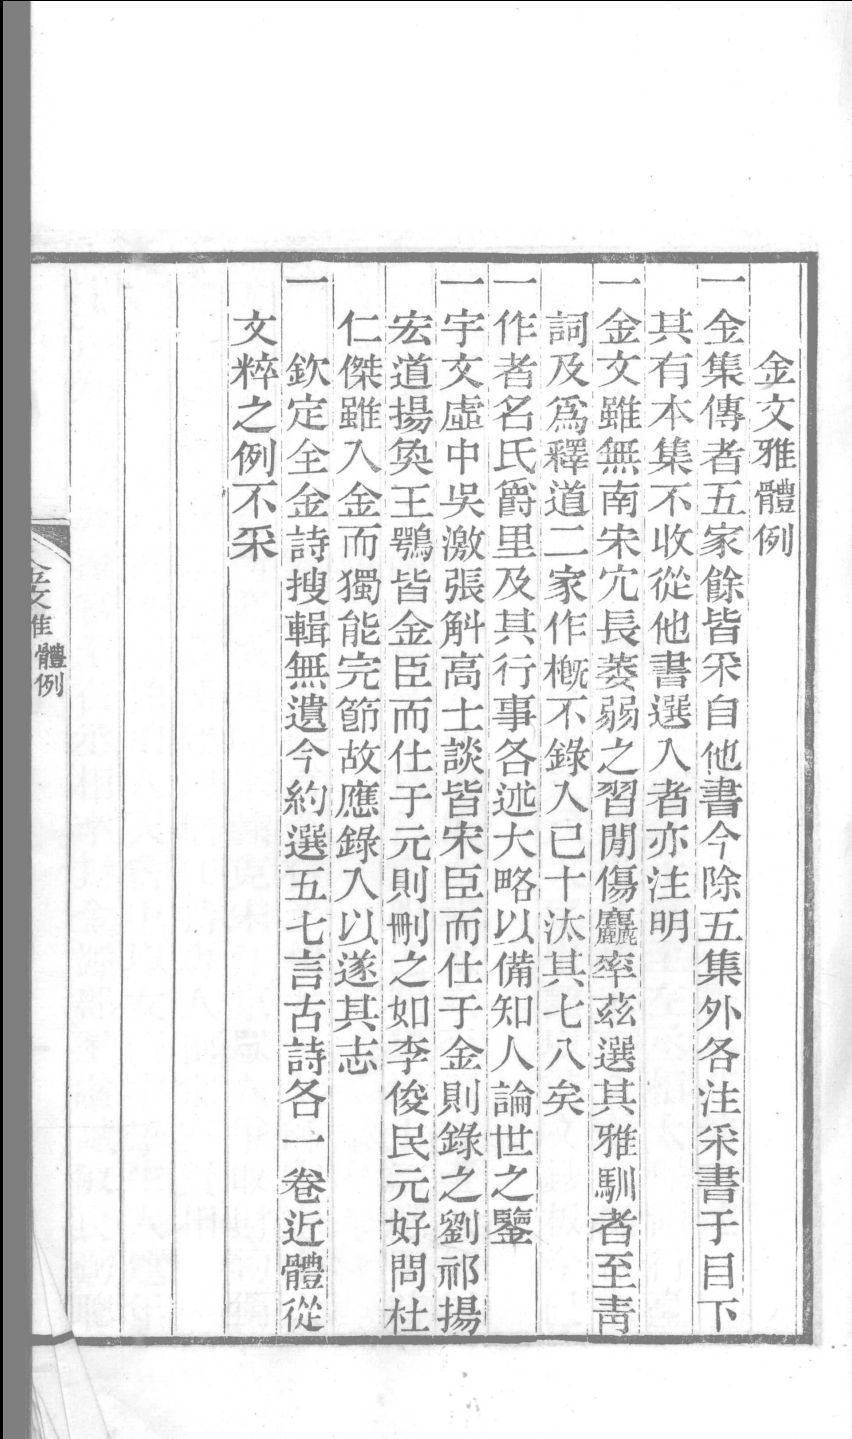 金文雅體例
一金集傳者五家餘皆采自他書今除五集外各注采書于目下
其有本集不收從他書選入者亦注明
一金文雖無南宋宂長萎弱之習閒傷麤率茲選其雅馴者至靑
詞及爲釋道二家作槪不錄入已十汰其七八矣
一作者名氏爵里及其行事各述大略以備知人論世之鑒
一宇文虛中吳激張斛高士談皆宋臣而仕于金則錄之劉祁揚
宏道揚奐王鶚皆金臣而仕于元則刪之如李俊民元好問杜
仁傑雖入金而獨能完節故應錄入以遂其志
一欽定全金詩搜輯無遺今約選五七言古詩各一卷近體從
文粹之例不采
金文雅 體例